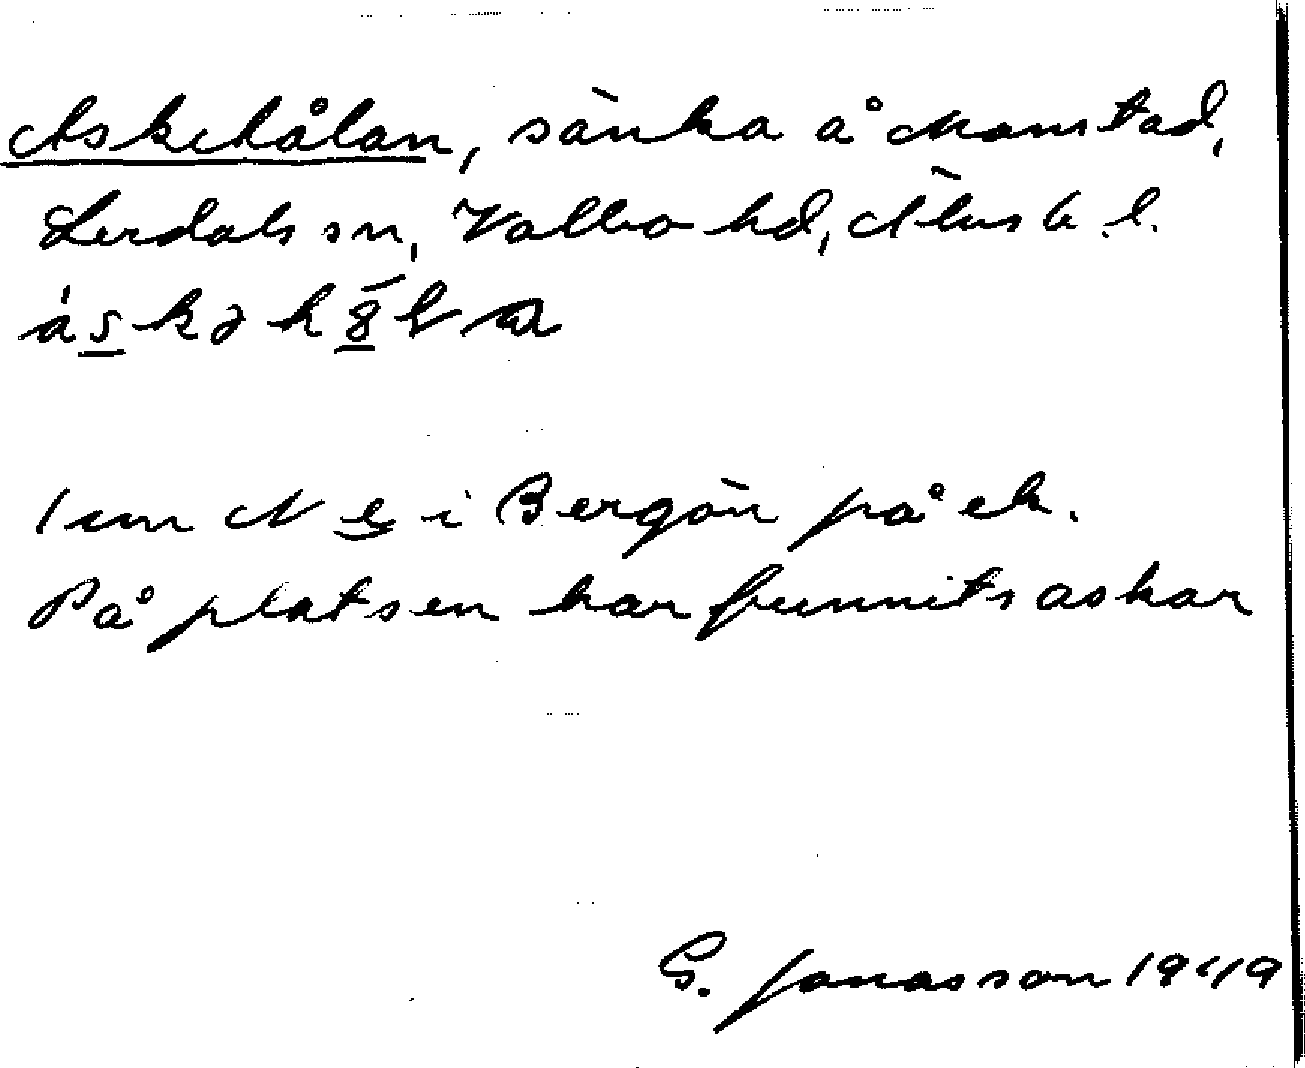 Askehålan, sänka å Manstad,
Lerdals sn, Valbo hd, Älvsb. l.
1 cm N e i Bergön på ek.
På platsen har funnits askar
G. Jonasson 1949